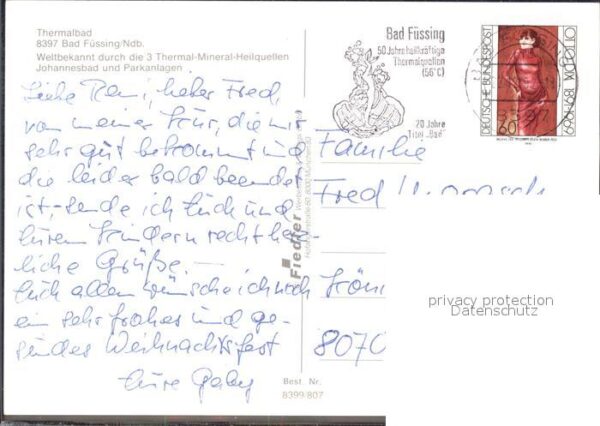 Thermalbad
8397 Bad Füssing/Ndb.
Weltbekannt durch die 3 Thermal-Mineral-Heilquellen
Johannesbad und Parkanlagen
Liebe Remi, lieber Fred,
von meiner Kur, die mir
sehr gut bekommt und
die leider bald beendet
ist, sende ich Euch und
Euren Kindern recht herz-
liche Grüße. –
Euch allen wünsche ich noch
ein sehr frohes und ge-
sundes Weihnachtsfest
Eure Gaby
Bad Füssing
50 Jahre heilkräftige
Thermalquellen
(56°C)
20 Jahre
Titel „Bad"
DEUTSCHE BUNDESPOST
60
OTTO DIX 1891-1969
Fiedler
Familie
Fred
8070
Best. Nr.
8399/807
privacy protection
Datenschutz